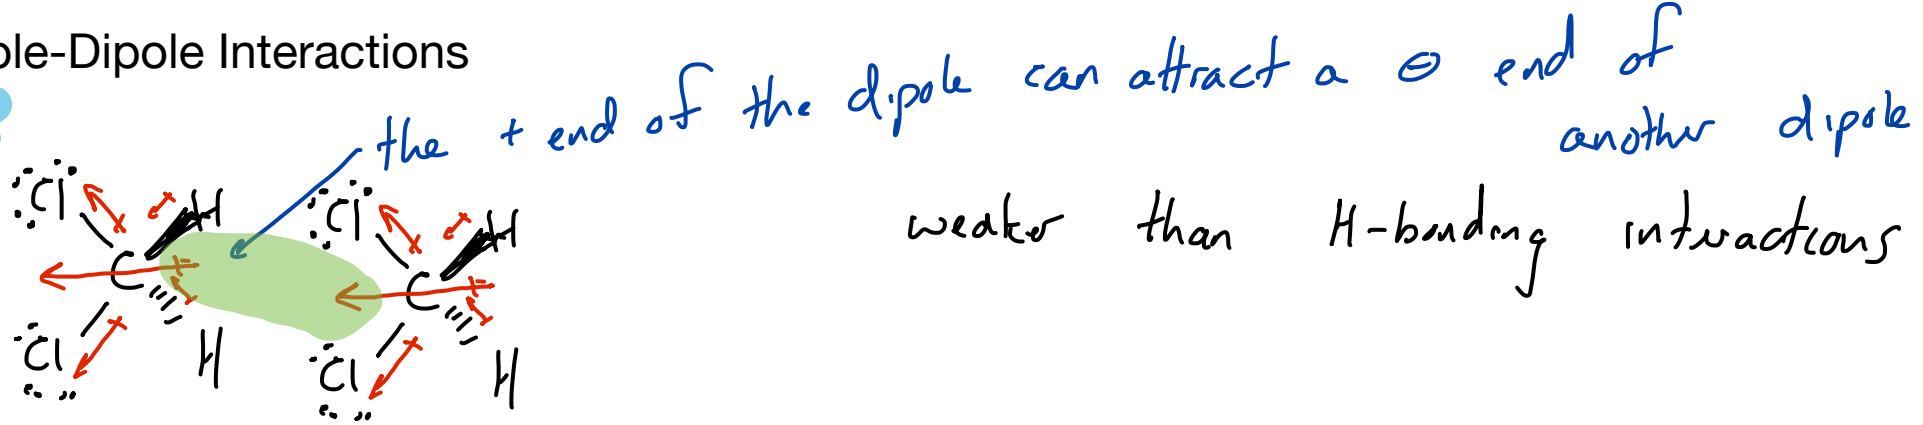 ole-Dipole Interactions
the + end of the dipole can attract a ⊖ end of
another dipole
weaker than H-bonding interactions
Cl H Cl H
C C
Cl H Cl H